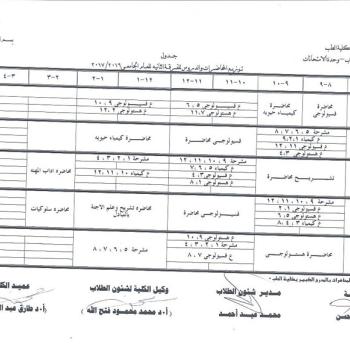 كلية الطب
وحدة الامتحانات
جدول
توزيع المحاضرات والدروس للفرقة الثانية للعام الجامعى ٢٠١٧/٢٠١٦
٩-٨ ١٠-٩ ١١-١٠ ١٢-١١ ١-١٢ ٢-١ ٣-٢ ٤-٣
محاضرة فسيولوجى
محاضرة كيمياء حيويه
ع فسيولوجى ٦،٥
ع هستولوجى ١١،٧
ع فسيولوجى ١٠،٩
ع هستولوجى ١٢،٢
مشرحة ٨،٧،٦،٥
ع كيمياء ٩،٢،١
ع فسيولوجى ١٢،١١
ع هستولوجى ٤،٣
فسيولوجى محاضرة
محاضرة كيمياء حيويه
تشريح محاضرة
مشرحة ١٢،١١،١٠،٩
ع كيمياء ٧،٦،٥
ع فسيولوجى ٤،٣
ع هستولوجى ٨،١
مشرحة ٤،٣،٢،١
ع كيمياء ١٢،١١،١٠
محاضرة اداب المهنه
مشرحة ١٢،١١،١٠،٩
ع فسيولوجى ٢،١
ع هستولوجى ٦،٥
ع كيمياء ٨،٤،٣
فسيولوجى محاضرة
محاضرة تشريح وعلم الاجنة بالتبادل
محاضرة سلوكيات
محاضرة هستولوجى
ع هستولوجى ١٠،٩
مشرحة ٤،٣،٢،١
ع فسيولوجى ٨،٧
مشرحة ٨،٧،٦،٥
مدير شئون الطلاب
محمد عيد أحمد
وكيل الكلية لشئون الطلاب
(أ.د محمد محمود فتح الله)
عميد الكلية
(أ.د طارق عبد